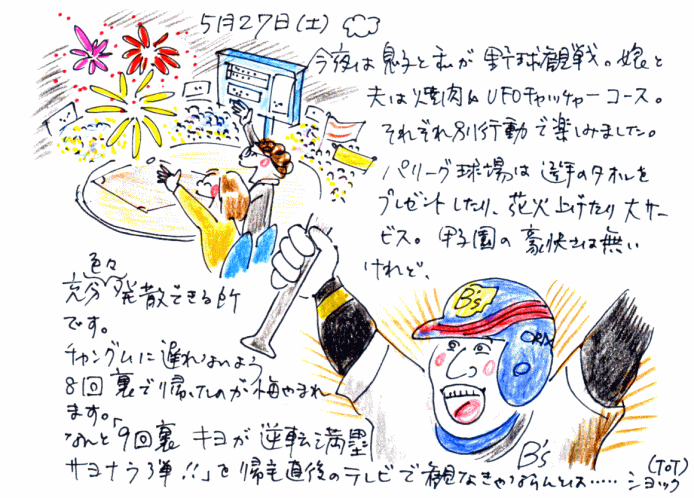 5月27日(土)
今夜は息子と私が野球観戦。娘と
夫は焼肉&UFOキャッチャーコース。
それぞれ別行動で楽しみました。
パリーグ球場は選手のタオルを
プレゼントしたり、花火上げたり大サー
ビス。甲子園の豪快さは無い
けれど、
色々
充分発散できる所
です。
チャングムに遅れないよう
8回裏で帰ったのが悔やまれ
ます。
なんと「9回裏 キヨが逆転満塁
サヨナラ弾!!」を帰宅直後のテレビで観なきゃならんとは……ショック
(ToT)
B's
ORIX
B's